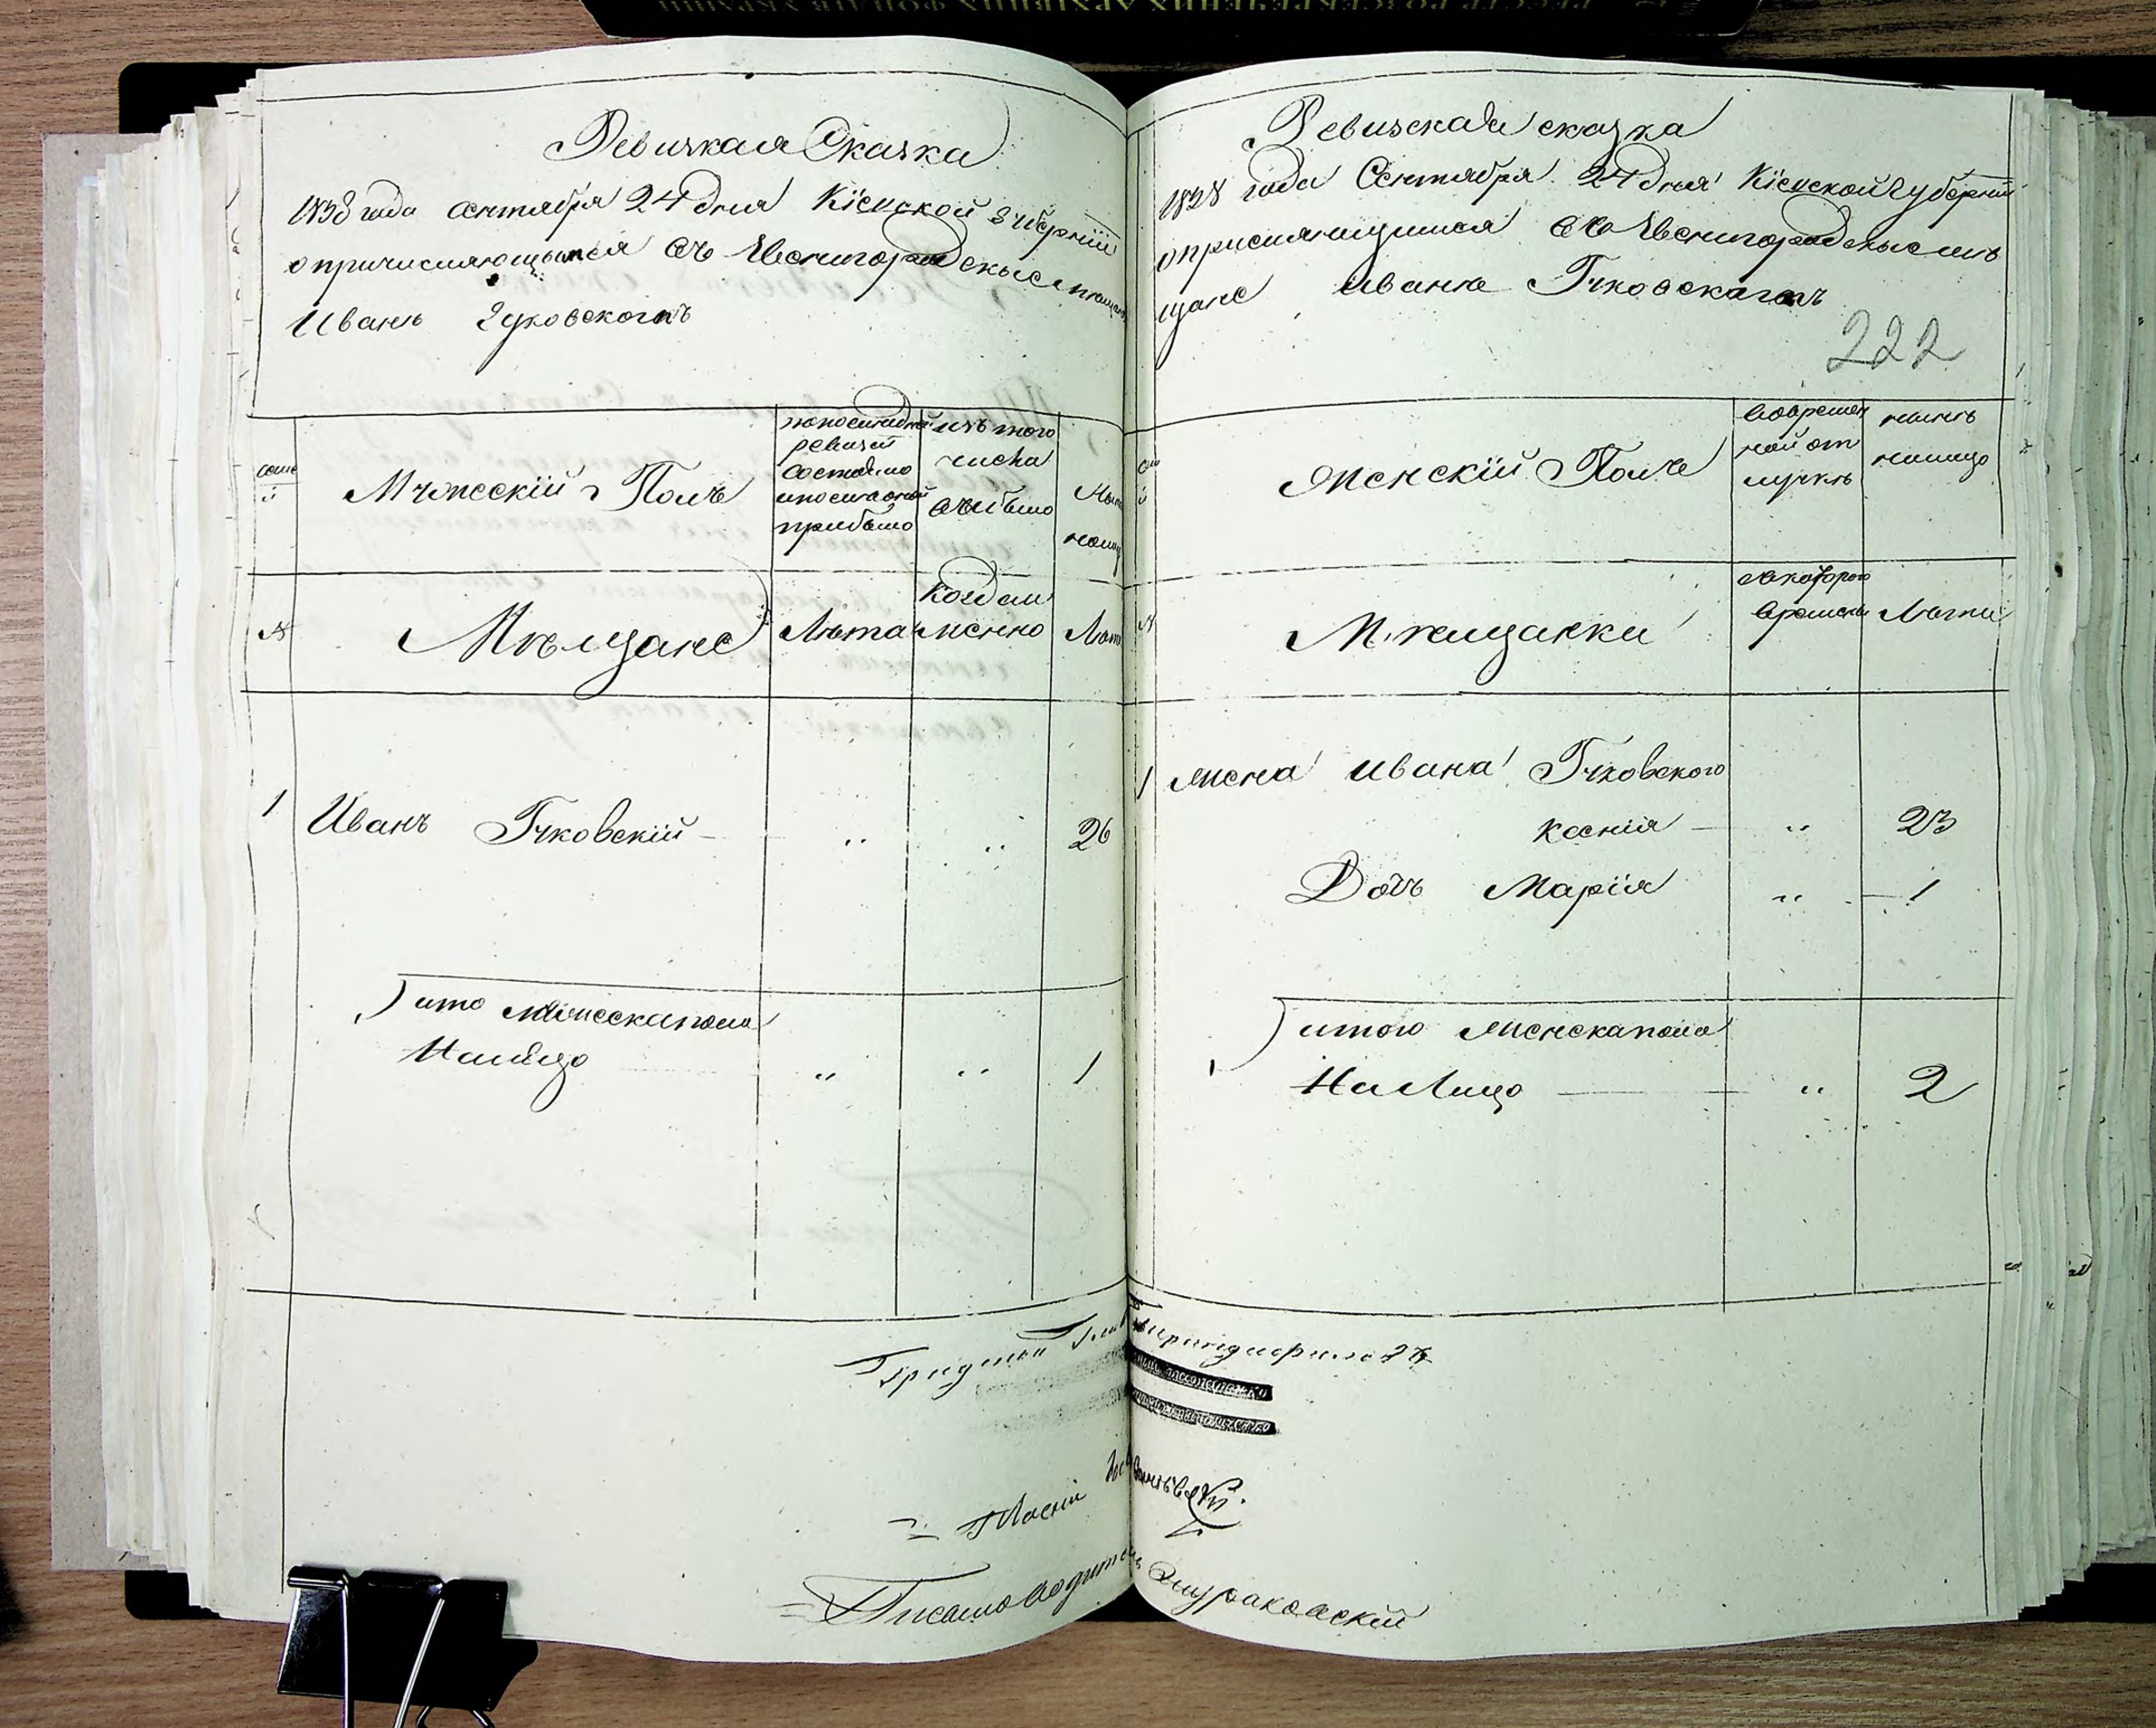 Ревизкая Сказка
1838 года сентября 24 дня Кіевской губерніи
о причисляющымся съ Звенигородскые мещане
Иванъ Гуковского
семьи
Мужескій Полъ
по последней
ревизіи
состояло
и после оной
прибыло
изъ того
числа
выбыло
Ныне
налицо
№
Мѣщане
Лѣта
когда и
менно
Лета
1
Иванъ Гуковскій
"
"
26
итого мужеска пола
Налицо
"
"
1
Ревизская сказка
1838 года Сентября 24 дня Кіевской губерніи
о присляющимся въ Звенигородскые мѣ
щане Ивана Гуковского
222
семьи
Женскій Полъ
во времен
ной от
лучкѣ
нынѣ
налицо
№
Мещанки
съ которого
времени
Лета
1
жена Ивана Гуковского
Ксенія
"
23
Дочь Марія
"
1
итого женска пола
На Лицо
"
2
Писмоводитель